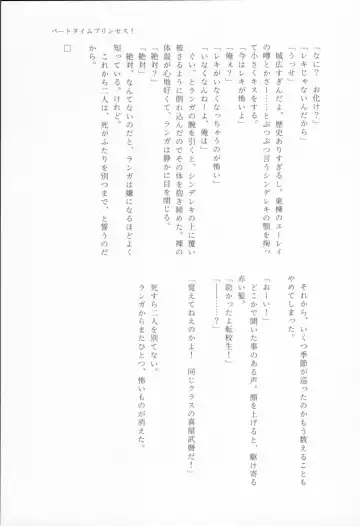 パートタイムプリンセス！
「なに？　お化け？」
「レキじゃないんだから」
「うっせ」
城広すぎんだよ、歴史ありすぎるし、東棟のエーレイ
の噂とかさー……とぶつぶつ言うシンデレキの顎を掬っ
て小さくキスをする。
「今はレキが怖いよ」
「俺ぇ？」
「レキがいなくなっちゃうのが怖い」
「いなくなんねーよ、俺は」
ぐい、とランガの腕を引くと、シンデレキの上に覆い
被さるように倒れ込んだのでその体を抱き締めた。裸の
体温が心地好くて、ランガは静かに目を閉じる。
「絶対？」
「絶対」
絶対、なんてないのだと、ランガは嫌になるほどよく
知っている。けれど。
これから二人は、死がふたりを別つまで、と誓うのだ
から。
□
それから、いくつ季節が巡ったのかもう数えることも
やめてしまった。
「おーい！」
どこかで聞いた事のある声。顔を上げると、駆け寄る
赤い髪。
「助かったよ転校生！」
「――……？」
「覚えてねえのかよ！　同じクラスの喜屋武暦だ！」
死すら二人を別てない。
ランガからまたひとつ、怖いものが消えた。